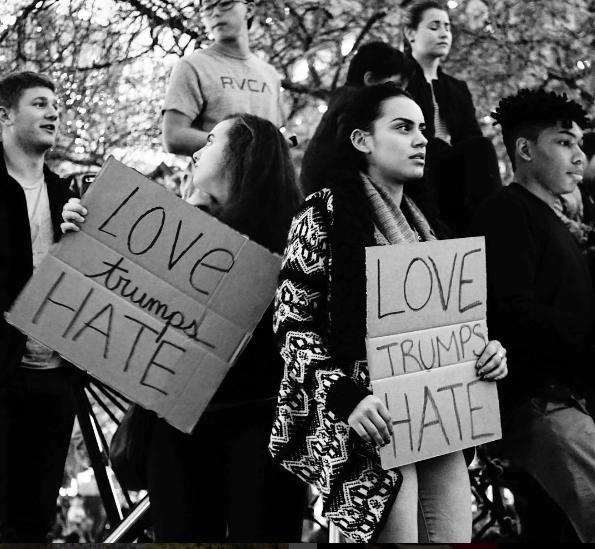 RVCA
LOVE
trumps
HATE
LOVE
TRUMPS
HATE